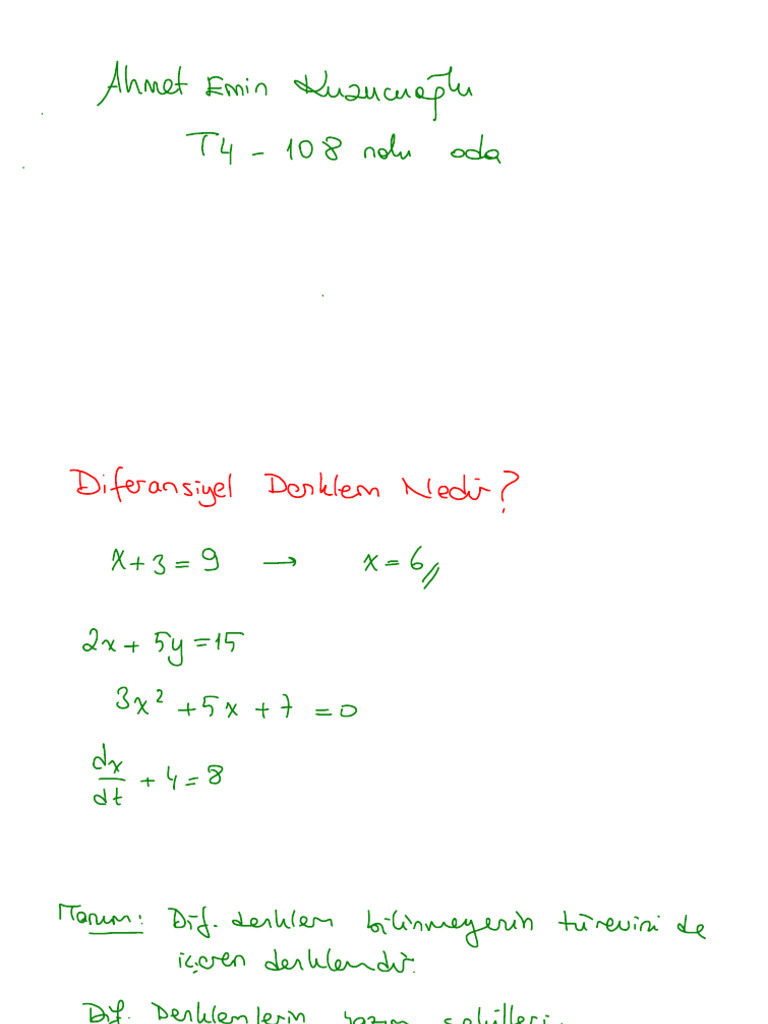 Ahmet Emin Kuzucuoğlu
T4 - 108 nolu oda
Diferansiyel Denklem Nedir?
x + 3 = 9 → x = 6 //
2x + 5y = 15
3x² + 5x + 7 = 0
dx/dt + 4 = 8
Tanım: Dif. denklem bilinmeyenin türevini de
içeren denklemdir.
Dif. Denklemlerin yazım şekilleri